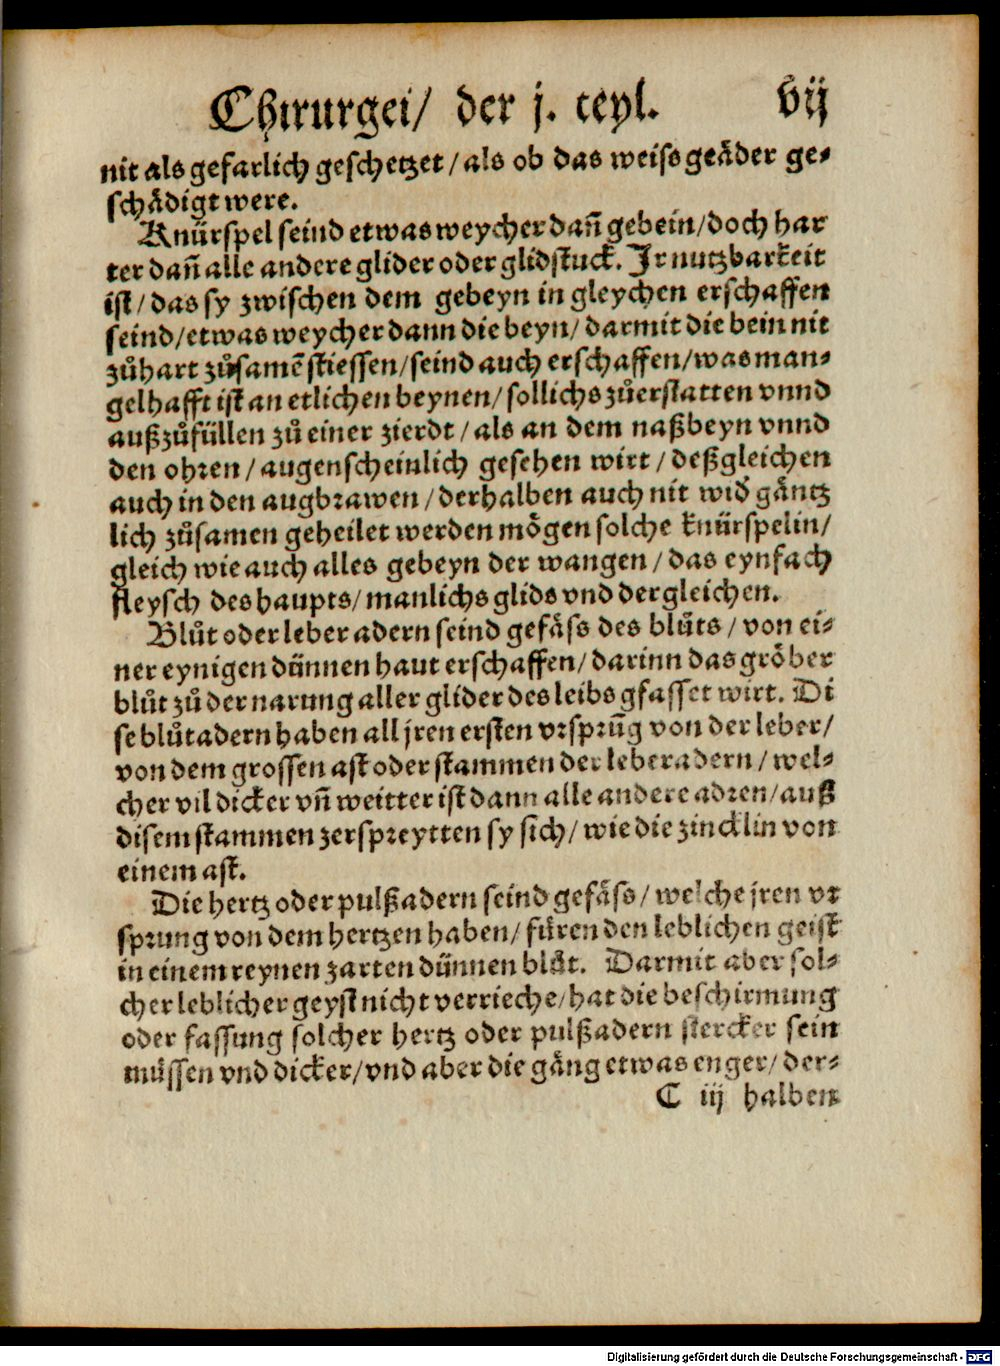 Chirurgei/ der j. teyl. vij
nit als gefarlich geschetzet/als ob das weiss geäder ge-
schädigt were.
Knürspel seind etwas weycher dañ gebein/doch har
ter dañ alle andere glider oder glidstuck. Jr nutzbarkeit
ist/das sy zwischen dem gebeyn in gleychen erschaffen
seind/etwas weycher dann die beyn/darmit die bein nit
zůhart zůsamē stiessen/seind auch erschaffen/was man-
gelhafft ist an etlichen beynen/sollichs zůerstatten vnnd
außzůfüllen zů einer zierdt/als an dem naßbeyn vnnd
den ohren/augenscheinlich gesehen wirt/deßgleichen
auch in den augbrawen/derhalben auch nit wid̕ gäntz
lich zůsamen geheilet werden mögen solche knürspelin/
gleich wie auch alles gebeyn der wangen/das eynfach
fleysch des haupts/manlichs glids vnd dergleichen.
Blůt oder leber adern seind gefäss des blůts/von ei-
ner eynigen dünnen haut erschaffen/darinn das gröber
blůt zů der narung aller glider des leibs gfasset wirt. Di
se blůtadern haben all jren ersten vrsprūg von der leber/
von dem grossen ast oder stammen der leberadern/wel-
cher vil dicker vñ weitter ist dann alle andere adren/auß
disem stammen zerspreytten sy sich/wie die zincklin von
einem ast.
Die hertz oder pulßadern seind gefäss/welche jren vr
sprung von dem hertzen haben/füren den leblichen geist
in einem reynen zarten dünnen blůt. Darmit aber sol-
cher leblicher geyst nicht verrieche/hat die beschirmung
oder fassung solcher hertz oder pulßadern stercker sein
müssen vnd dicker/vnd aber die gäng etwas enger/der-
C iij halben
Digitalisierung gefördert durch die Deutsche Forschungsgemeinschaft - DFG